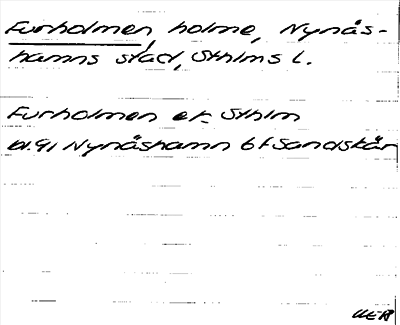 Furholmen, holme, Nynäs-
hamns stad, Sthlms l.
Furholmen ek. Sthlm
bl. 91 Nynäshamn 6f Sandskär